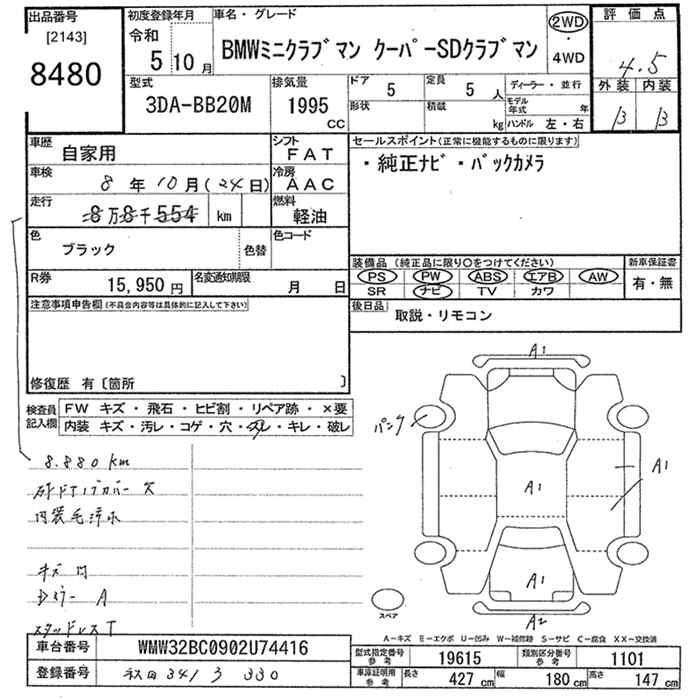 出品番号
[2143]
8480
初度登録年月
令和
5 10 月
車名・グレード
BMWミニクラブマン クーパーSDクラブマン
2WD
4WD
評価点
4.5
外装 内装
B B
型式
3DA-BB20M
排気量
1995
CC
ドア
5
定員
5
人
形状
積載
kg
ディーラー・並行
モデル年式
年
ハンドル 左・右
車歴
自家用
シフト
FAT
車検
8 年 10 月 (24 日)
冷房
AAC
走行
8 万 8 千 554 km
燃料
軽油
色
ブラック
色替
色コード
R券
15,950 円
名変通知期限
月 日
セールスポイント(正常に機能するものに限ります)
・純正ナビ・バックカメラ
装備品(純正品に限り○をつけてください)
PS PW ABS エアB AW
SR ナビ TV カワ
新車保証書
有・無
後日品
取説・リモコン
注意事項申告欄(不具合内容等は具体的に記入して下さい)
修復歴 有〔箇所 〕
検査員記入欄
FW キズ・飛石・ヒビ割・リペア跡・×要
内装 キズ・汚レ・コゲ・穴・スレ・キレ・破レ
8.880 km
キズ
スタッドレス T
A1
パンク
A1
A1
A1
A2
スペア
A-キズ E-エクボ U-凹み W-補修跡 S-サビ C-腐食 XX-交換済
車台番号
WMW32BC0902U74416
登録番号
秋田 341 330
型式指定番号
参考
19615
類別区分番号
参考
1101
車庫証明用
参考
長さ
427 cm
幅
180 cm
高さ
147 cm